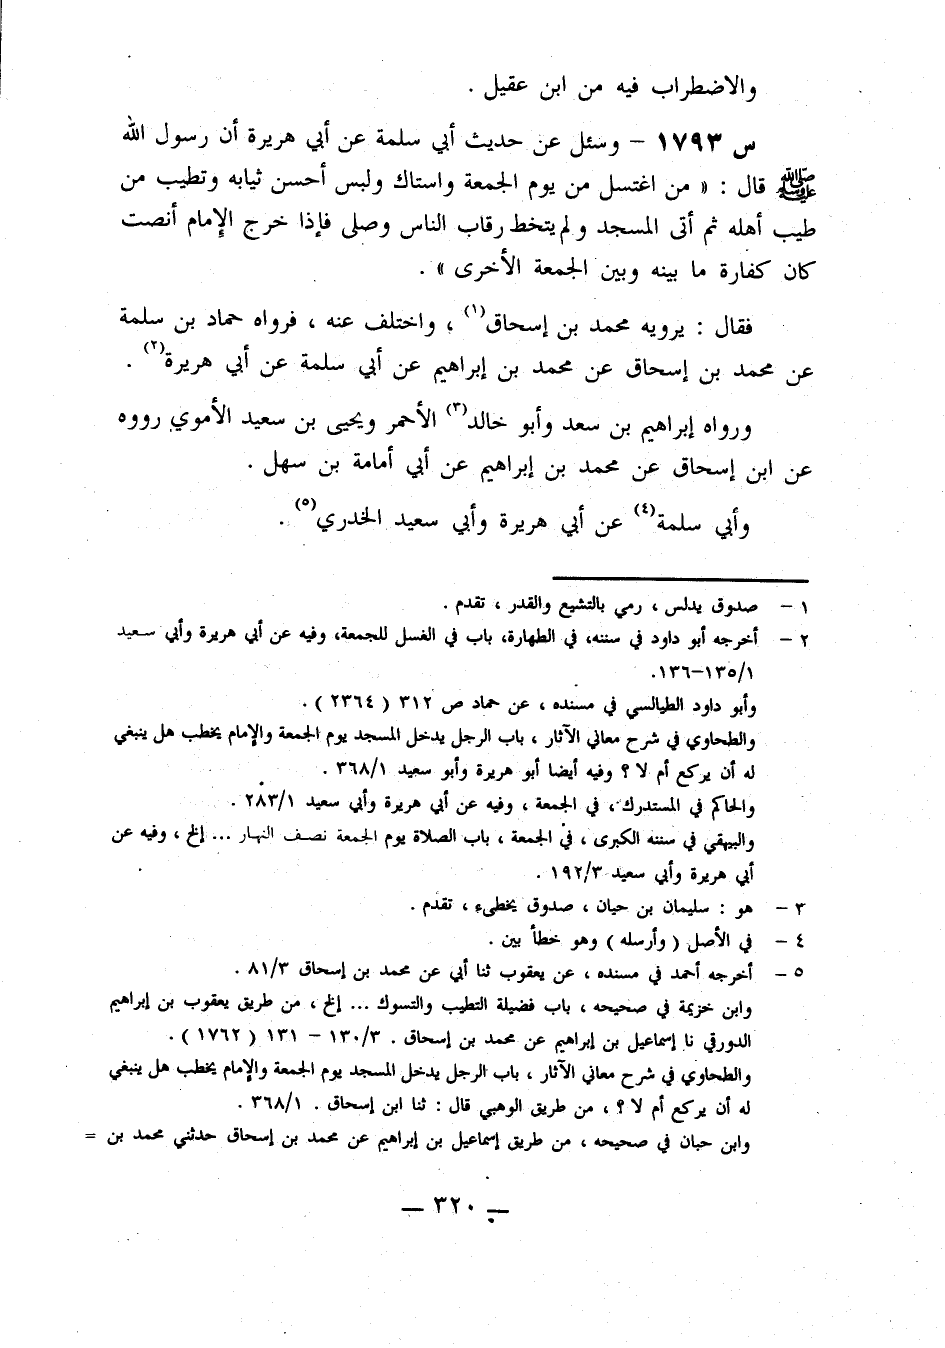 والاضطراب فيه من ابن عقيل .
س ١٧٩٣ - وسئل عن حديث أبي سلمة عن أبي هريرة أن رسول الله
ﷺ قال : « من اغتسل من يوم الجمعة واستاك ولبس أحسن ثيابه وتطيب من
طيب أهله ثم أتى المسجد ولم يتخط رقاب الناس وصلى فإذا خرج الإمام أنصت
كان كفارة ما بينه وبين الجمعة الأخرى » .
فقال : يرويه محمد بن إسحاق(١) ، واختلف عنه ، فرواه حماد بن سلمة
عن محمد بن إسحاق عن محمد بن إبراهيم عن أبي سلمة عن أبي هريرة(٢) .
ورواه إبراهيم بن سعد وأبو خالد(٣) الأحمر ويحيى بن سعيد الأموي رووه
عن ابن إسحاق عن محمد بن إبراهيم عن أبي أمامة بن سهل .
وأبي سلمة(٤) عن أبي هريرة وأبي سعيد الخدري(٥) .
١ - صدوق يدلس ، رمي بالتشيع والقدر ، تقدم .
٢ - أخرجه أبو داود في سننه، في الطهارة، باب في الغسل للجمعة، وفيه عن أبي هريرة وأبي سعيد
١/١٣٥-١٣٦.
وأبو داود الطيالسي في مسنده ، عن حماد ص ٣١٢ ( ٢٣٦٤ ) .
والطحاوي في شرح معاني الآثار ، باب الرجل يدخل المسجد يوم الجمعة والإمام يخطب هل ينبغي
له أن يركع أم لا ؟ وفيه أيضا أبو هريرة وأبو سعيد ٣٦٨/١ .
والحاكم في المستدرك ، في الجمعة ، وفيه عن أبي هريرة وأبي سعيد ٢٨٣/١ .
والبيهقي في سننه الكبرى ، في الجمعة ، باب الصلاة يوم الجمعة نصف النهار ... إلخ ، وفيه عن
أبي هريرة وأبي سعيد ١٩٢/٣ .
٣ - هو : سليمان بن حيان ، صدوق يخطىء ، تقدم .
٤ - في الأصل ( وأرسله ) وهو خطأ بين .
٥ - أخرجه أحمد في مسنده ، عن يعقوب ثنا أبي عن محمد بن إسحاق ٨١/٣ .
وابن خزيمة في صحيحه ، باب فضيلة التطيب والتسوك ... إلخ ، من طريق يعقوب بن إبراهيم
الدورقي نا إسماعيل بن إبراهيم عن محمد بن إسحاق . ١٣٠/٣ - ١٣١ ( ١٧٦٢ ) .
والطحاوي في شرح معاني الآثار ، باب الرجل يدخل المسجد يوم الجمعة والإمام يخطب هل ينبغي
له أن يركع أم لا ؟ ، من طريق الوهبي قال : ثنا ابن إسحاق . ٣٦٨/١ .
وابن حبان في صحيحه ، من طريق إسماعيل بن إبراهيم عن محمد بن إسحاق حدثني محمد بن =
— ٣٢٠ —